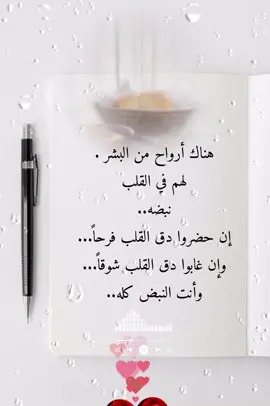 هناك أرواح من البشر .
لهم في القلب
نبضه..
إن حضروا دق القلب فرحاً...
وإن غابوا دق القلب شوقاً...
وأنت النبض كله..